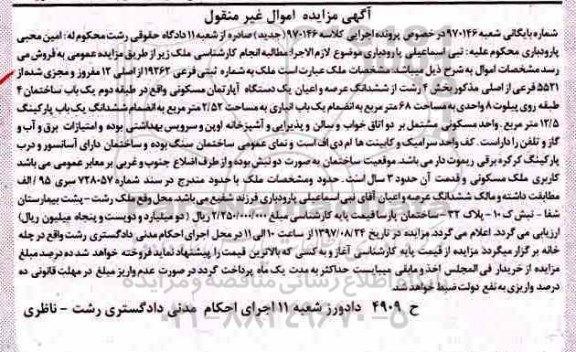 آگهی مزایده اموال غیر منقول
شماره بایگانی شعبه ۹۷۰۱۴۶ درخصوص پرونده اجرایی کلاسه ۹۷۰۱۴۶ (جدید) صادره از شعبه ۱۱ دادگاه حقوقی رشت محکوم له: امین محبی
پارودباری محکوم علیه: نبی اسماعیلی پارودباری موضوع لازم الاجرا: مطالبه انجام کارشناسی ملک زیر از طریق مزایده عمومی به فروش می
رسد مشخصات اموال به شرح ذیل میباشد: مشخصات ملک عبارت است ملک به شماره ثبتی فرعی ۱۹۲۶۲ از اصلی ۱۲ مفروز و مجزی شده از
۵۵۲۱ فرعی از اصلی مذکور بخش ۴ رشت از ششدانگ عرصه و اعیان یک دستگاه آپارتمان مسکونی واقع در طبقه دوم یک باب ساختمان ۴
طبقه روی پیلوت ۸ واحدی به مساحت ۶۸ متر مربع به انضمام یک باب انباری به مساحت ۲/۵۲ متر مربع به انضمام ششدانگ یک باب پارکینگ
۱۲/۵ متر مربع. واحد مسکونی مشتمل بر دو اتاق خواب و سالن و پذیرایی و آشپزخانه اوپن و سرویس بهداشتی بوده و امتیازات برق و آب و
گاز و تلفن را داراست. کف واحد سرامیک و کابینت ها ام دی اف است و نمای عمومی ساختمان سنگ بوده و ساختمان دارای آسانسور و درب
پارکینگ کرکره برقی ریموت دار می باشد. موقعیت ساختمان به صورت دو نبش بوده و از طرف اضلاع جنوب و غربی بر معابر عمومی می باشد
کاربری ملک مسکونی و قدمت آن حدود ۳ سال است. حدود ومشخصات ملک با حدود مندرج در سند شماره ۷۲۸۰۵۷ سری ۹۵ / الف
مطابقت داشته و مالک ششدانگ عرصه و اعیان آقای نبی اسماعیلی پارودباری فرزند شفیع می باشد. محل وقع ملک رشت - پشت بیمارستان
شفا - نبش ک ۱۰ - پلاک ۳۲ - ساختمان پارسا قیمت پایه کارشناسی مبلغ ۲/۲۵۰/۰۰۰/۰۰۰ ریال ( دو میلیارد و دویست و پنجاه میلیون ریال)
ارزیابی می گردد. اعلام می گردد. مزایده در تاریخ ۱۳۹۷/۰۸/۲۴ از ساعت ۱۰ الی ۱۱ در محل اجرای احکام مدنی دادگستری رشت واقع در چله
خانه بر گزار میگردد مزایده از قیمت پایه کارشناسی آغاز و به کسی که بالاترین قیمت را پیشنهاد نماید فروخته خواهد شد ده درصد مبلغ
مزایده از خریدار فی المجلس اخذ و مابقی میبایست حداکثر به مدت یک ماه پرداخت گردد در صورت عدم واریز مبلغ در مهلت قانونی ده
درصد واریزی به نفع دولت ضبط خواهد شد.
ح ۴۹۰۹ دادورز شعبه ۱۱ اجرای احکام مدنی دادگستری رشت - ناظری